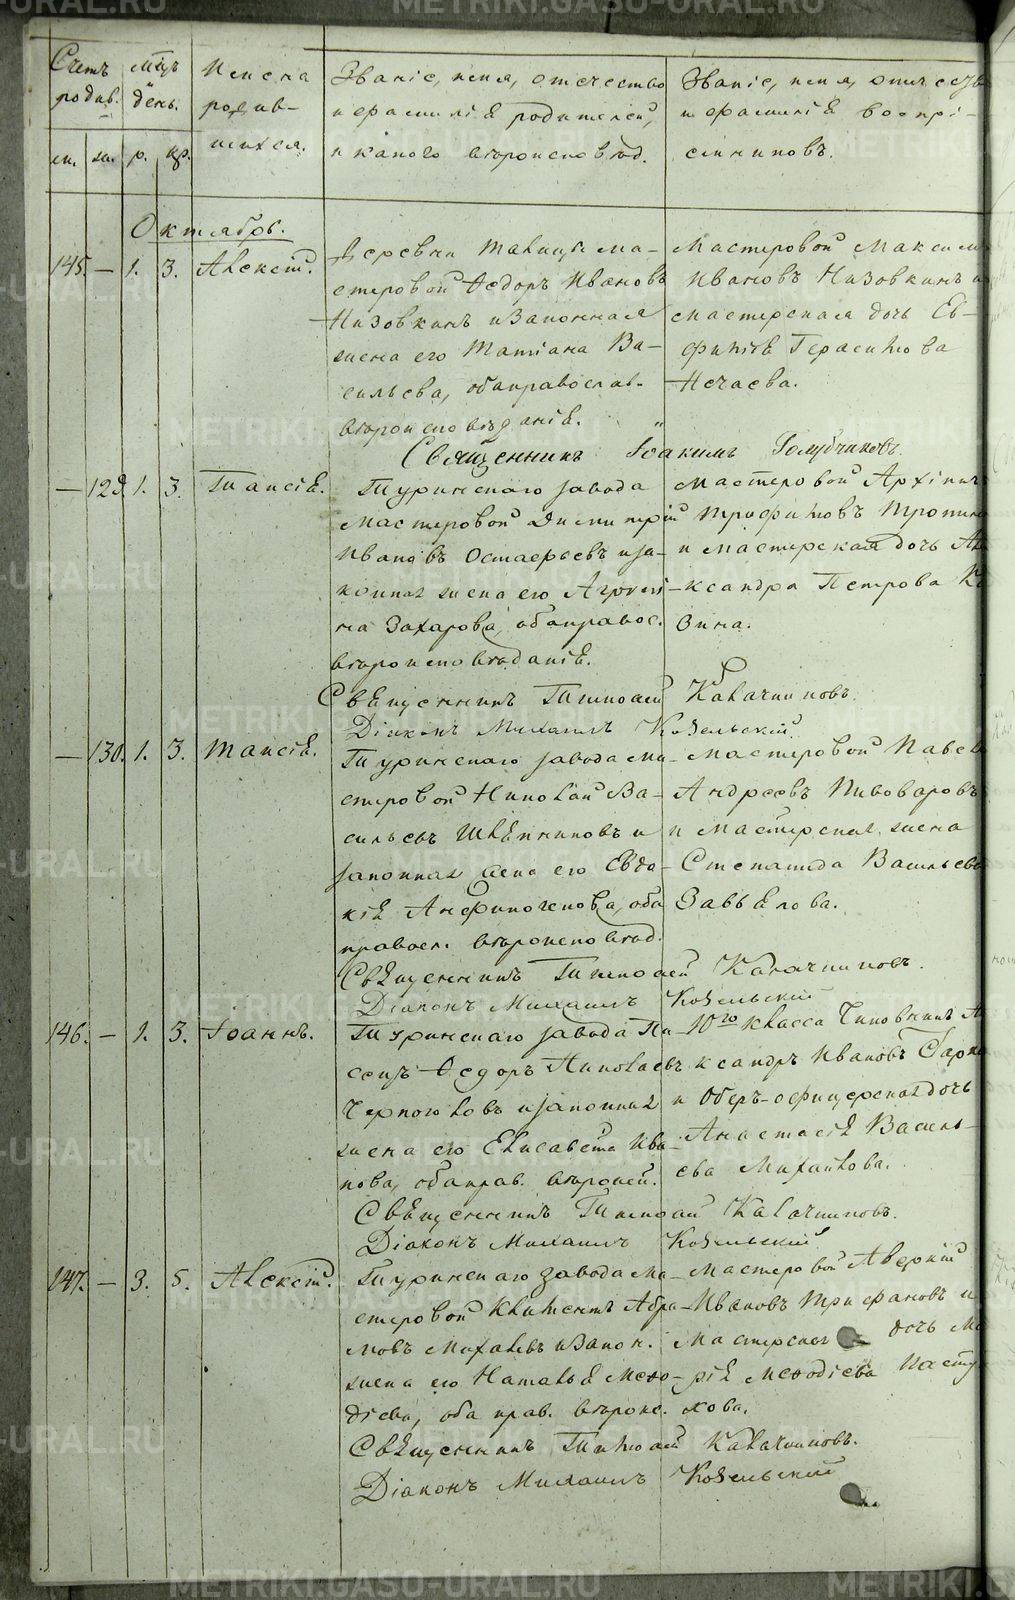 METRIKI.GASO-URAL.RU
Счетъ родив. мѣц. день. Имена родив- шихся. Званіе, имя, отчество и фамилія родителей, и какого вѣроисповѣд. Званіе, имя, отчество и фамилія воспрі- емниковъ.
м. ж. р. кр.
Октябрь.
145. — 1. 3. Алексій.
Деревни Талицы ма-
стеровой Ѳедоръ Ивановъ
Низовкинъ и законная
жена его Татіана Ва-
сильева, оба православ-
вѣроисповѣданія.
Мастеровой Максимъ
Ивановъ Низовкинъ и
мастерская дочь Ев-
фимія Герасимова
Нечаева.
Священникъ Іоакимъ Голубчиковъ.
— 129. 1. 3. Таисія.
Туринскаго завода
мастеровой Димитрій
Ивановъ Остафьевъ и за-
конная жена его Агрипи-
на Захарова, оба правос.
вѣроисповѣданія.
Мастеровой Архипъ
Трифановъ Тропинъ
и мастерская дочь Але-
ксандра Петрова
Священникъ Тимоѳей Калачниковъ.
Діаконъ Михаилъ Козельскій.
— 130. 1. 3. Таисія.
Туринскаго завода ма-
стеровой Николай Ва-
сильевъ и
законная жена его Евдо-
кія Анфиногенова, оба
правосл. вѣроисповѣд.
Мастеровой Павелъ
Андреевъ Пивоваровъ
и мастерская жена
Степанида Васильева
Завьялова.
Священникъ Тимоѳей Калачниковъ.
Діаконъ Михаилъ Козельскій
146. — 1. 3. Іоаннъ.
Туринскаго завода Пи-
сецъ Ѳедоръ Николаевъ
Черноголовъ и законная
жена его Елисавета Ива-
нова, оба прав. вѣроисп.
10го класса Чиновникъ Але-
ксандръ Ивановъ
и Оберъ-офицерская дочь
Анастасія Василь-
ева Михайлова.
Священникъ Тимоѳей Калачниковъ.
Діаконъ Михаилъ Козельскій
147. — 3. 5. Алексій.
Туринскаго завода Ма-
стеровой Климентъ Абра-
мовъ Михалевъ и закон.
жена его Наталья Меѳо-
діева, оба прав. вѣроис.
Мастеровой Аверкій
Ивановъ Трифановъ и
Мастерская дочь Ма-
рія Меѳодіева Пасту-
хова.
Священникъ Тимоѳей Калачниковъ.
Діаконъ Михаилъ Козельскій